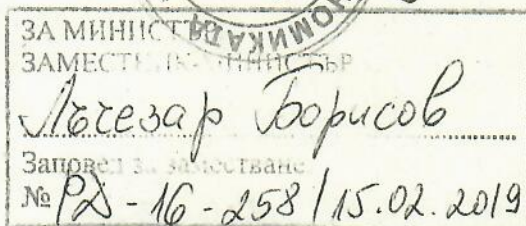 НОМИКАТА
ЗА МИНИСТЪР
ЗАМЕСТНИК-МИНИСТЪР
Лъчезар Борисов
Заповед за заместване
№ РД-16-258/15.02.2019